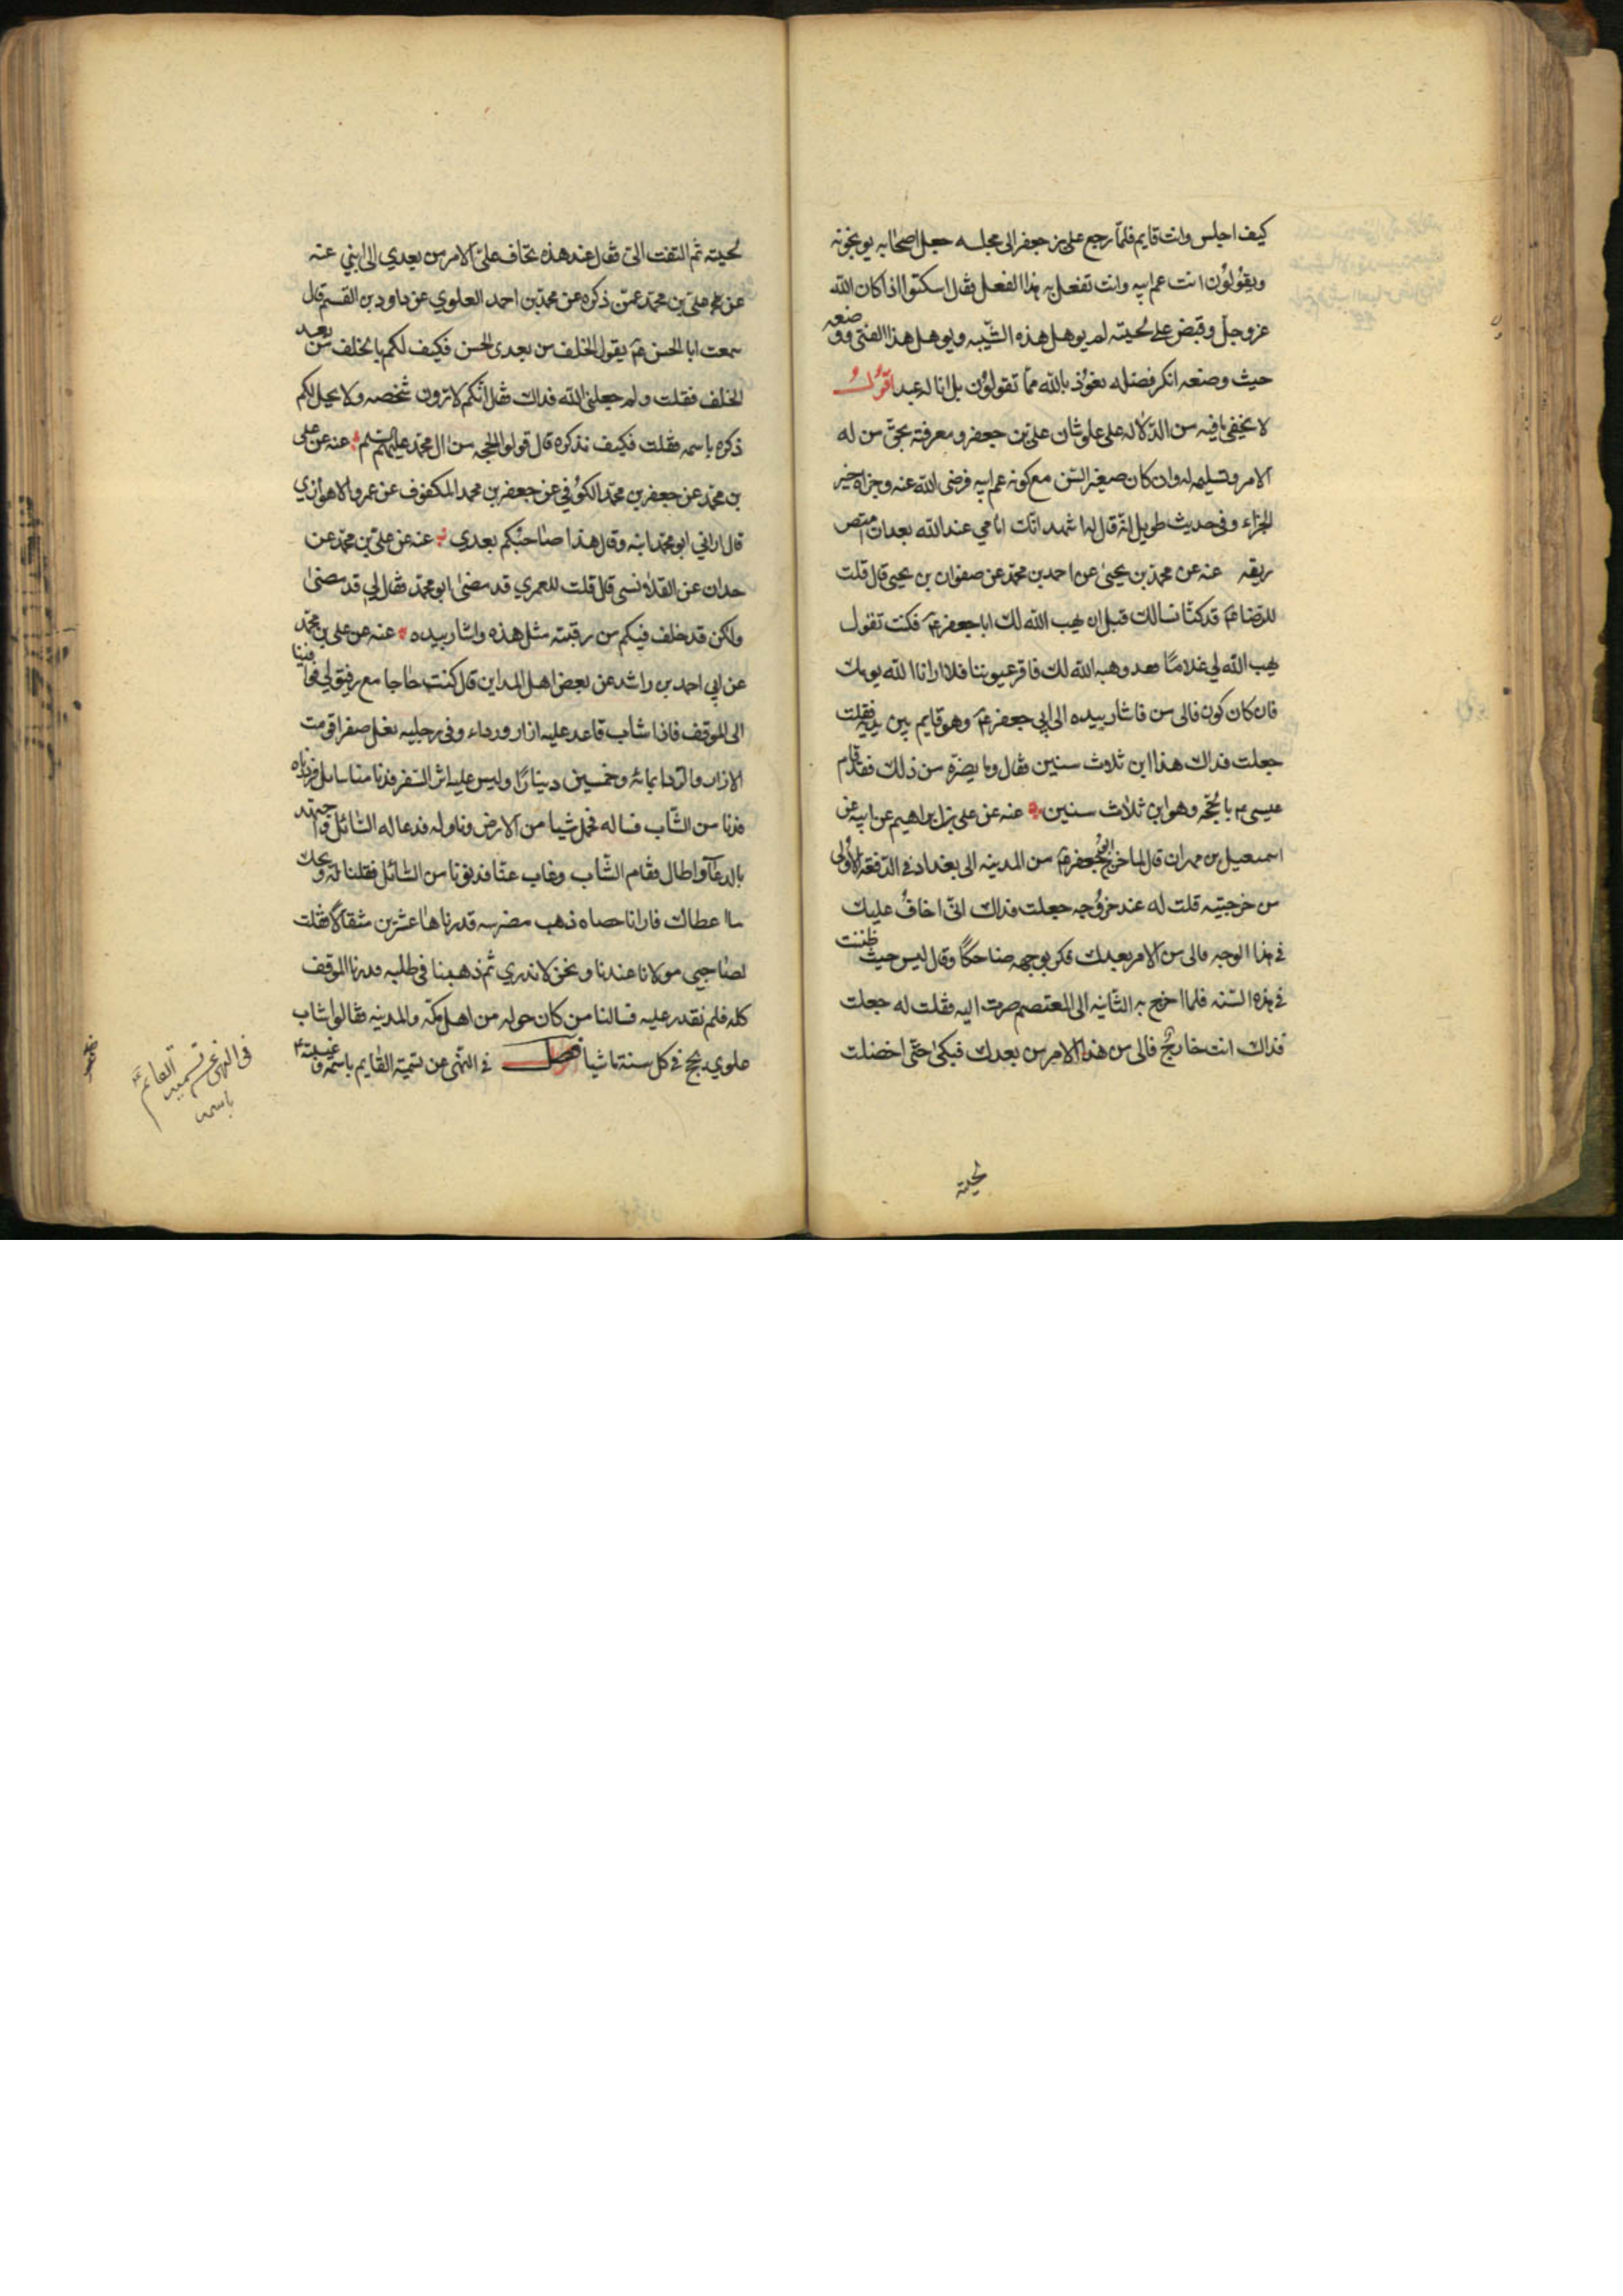 كيف اجلس وانت قايم فلما رجع علي بن جعفر الى مجلسه جعل اصحابه يوبخونه
ويقولون انت عم ابيه وانت تفعل به هذا الفعل فقال اسكتوا اذا كان الله
عز وجل وقبض على لحيته لم يوهل هذه الشيبه ويوهل هذا الفتى ووضعه
حيث وضعه انكر فضله نعوذ بالله مما تقولون بل انا له عبد اقول
لا يخفى ما فيه من الدلاله على علو شان علي بن جعفر ومعرفته بحق من له
الامر وتسليمه له وان كان صغير السن مع كونه عم ابيه فرضى الله عنه وجزاه خير
الجزاء وفي حديث طويل انه قال له اشهد انك امامي عند الله بعد ان امتص
ريقه عنه عن محمد بن يحيى عن احمد بن محمد عن صفوان بن يحيى قال قلت
للرضا ع قد كنا نسالك قبل ان يهب الله لك ابا جعفر ع فكنت تقول
يهب الله لي غلاما فقد وهبه الله لك فاقر عيوننا فلا ارانا الله يومك
فان كان كون فالى من فاشار بيده الى ابي جعفر ع وهو قايم بين يديه فقلت
جعلت فداك هذا ابن ثلاث سنين فقال وما يضره من ذلك فقد قام
عيسى ع بالحجه وهو ابن ثلاث سنين عنه عن علي بن ابراهيم عن ابيه عن
اسمعيل بن مهران قال لما خرج ابو جعفر ع من المدينه الى بغداد في الدفعه الاولى
من خرجتيه قلت له عند خروجه جعلت فداك اني اخاف عليك
في هذا الوجه فالى من الامر بعدك فكر بوجهه ضاحكا وقال ليس حيث ظننت
في هذه السنه فلما اخرج به الثانيه الى المعتصم صرت اليه فقلت له جعلت
فداك انت خارج فالى من هذا الامر من بعدك فبكى حتى اخضلت
لحيته
لحيته ثم التفت الي فقال عند هذه يخاف علي الامر من بعدي الى ابني عنه
عن علي بن محمد عمن ذكره عن محمد بن احمد العلوي عن داود بن القسم قال
سمعت ابا الحسن ع يقول الخلف من بعدي الحسن فكيف لكم بالخلف من بعد
الخلف فقلت ولم جعلني الله فداك فقال انكم لا ترون شخصه ولا يحل لكم
ذكره باسمه فقلت فكيف نذكره قال قولوا الحجه من ال محمد عليهم السلم عنه عن علي
بن محمد عن جعفر بن محمد الكوفي عن جعفر بن محمد المكفوف عن عمرو الاهوازي
قال اراني ابو محمد ابنه وقال هذا صاحبكم بعدي عنه عن علي بن محمد عن
حمدان عن القلانسي قال قلت للعمري قد مضى ابو محمد فقال لي قد مضى
ولكن قد خلف فيكم من رقبته مثل هذه واشار بيده عنه عن علي بن محمد
عن ابي احمد بن راشد عن بعض اهل المداين قال كنت حاجا مع رفيق لي فوافينا
الى الموقف فاذا شاب قاعد عليه ازار ورداء وفي رجليه نعل صفرا قومت
الازار والردا بمائه وخمسين دينارا وليس عليه اثر السفر فدنا منا سايل فرددناه
فدنا من الشاب فساله فحمل شيا من الارض وناوله فدعا له السائل واجتهد
بالدعاء واطال فقام الشاب وغاب عنا فدنونا من السائل فقلنا له ويحك
ما اعطاك فارانا حصاه ذهب مضرسه قدرناها عشرين مثقالا فقلت
لصاحبي مولانا عندنا ونحن لا ندري ثم ذهبنا في طلبه فدرنا الموقف
كله فلم نقدر عليه فسالنا من كان حوله من اهل مكه والمدينه فقالوا شاب
علوي يحج في كل سنة ماشيا فصل في النهي عن تسمية القايم باسمه وغيبته
في النهي عن تسميه القائم
باسمه